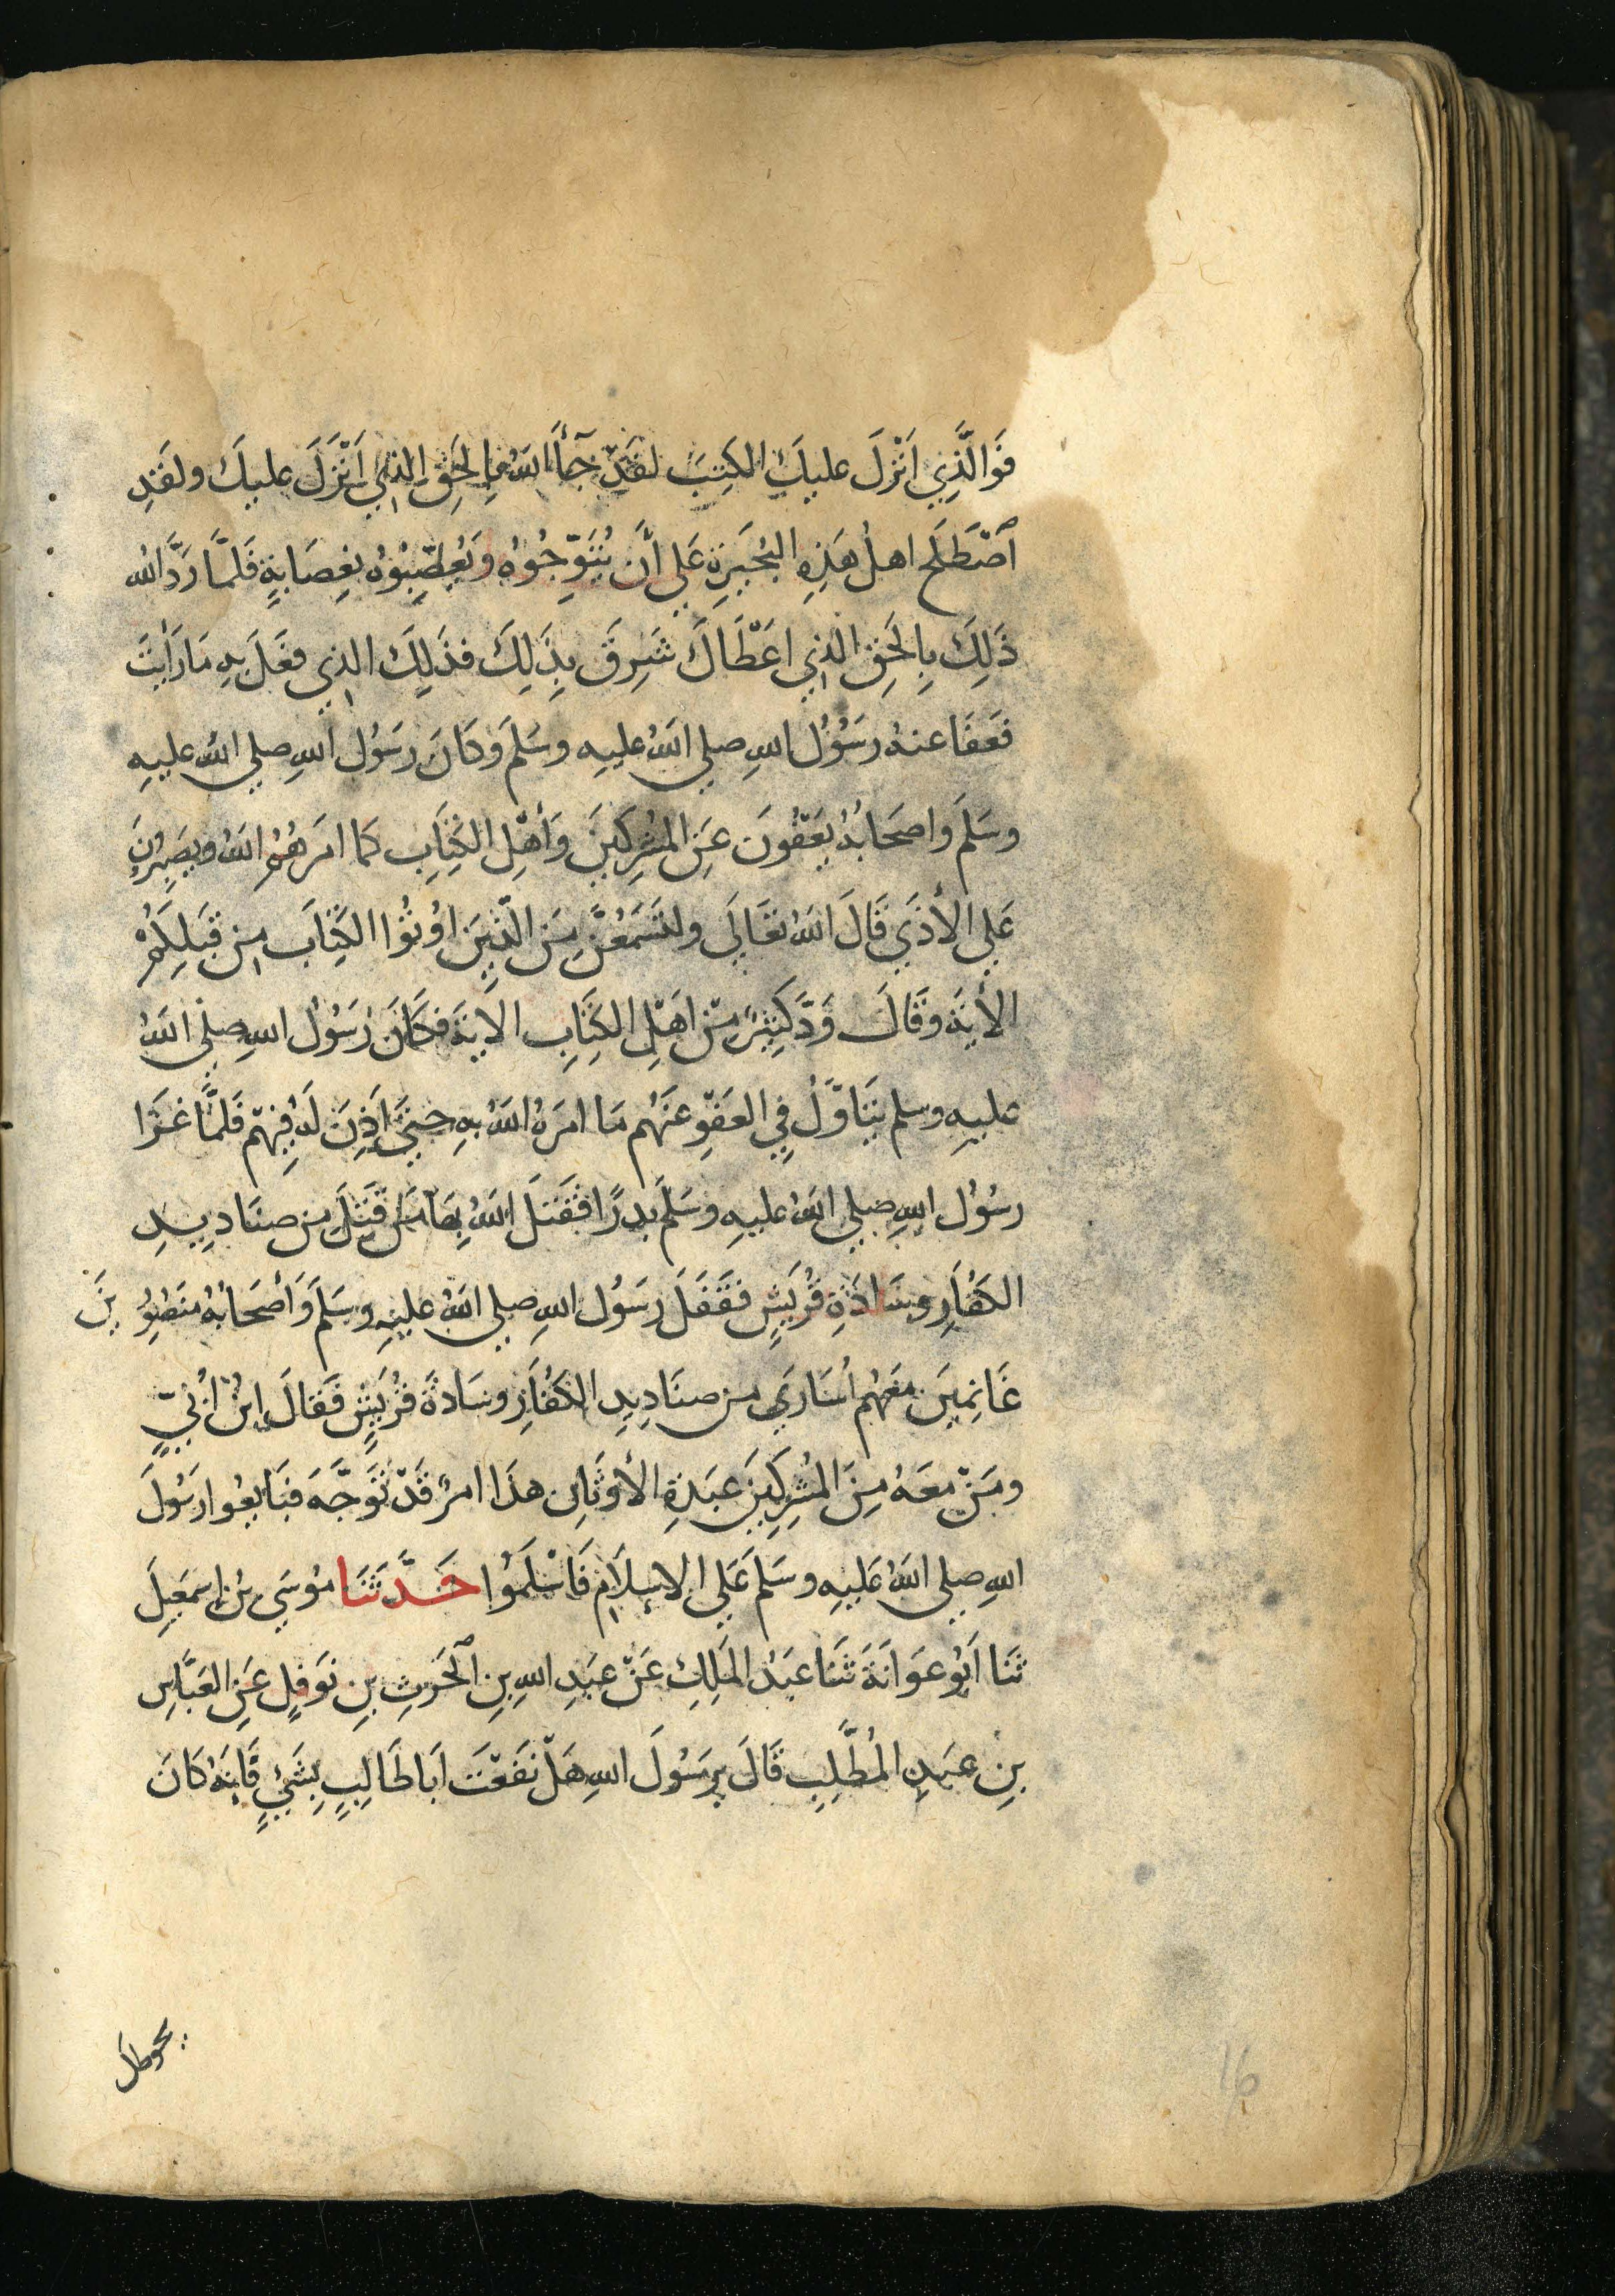 فَوَالَّذِي اَنْزَلَ عليكَ الكِتبَ لقَدْ جَآءَ اللهُ بِالحَقِّ الذِي اَنْزَلَ عليكَ ولقَدِ
آصْطَلَحَ اهلُ هَذِهِ البُحَيرَةِ عَلي أَن يُتَوِّجُوهُ وَيُعَصِّبُوهُ بِعِصَابةٍ فَلمَّا رَدَّ اللهُ
ذَلِكَ بِالحَقِّ الذِي اعْطَاكَ شَرِقَ بِذَلِكَ فذَلِكَ الذِي فعَلَ بِهِ مَا رَاَيْتَ
فعَفَا عنهُ رسُولُ اللهِ صلي اللهُ عليهِ وسَلمَ وكَانَ رسَوُل اللهِ صلي اللهُ عليهِ
وسَلمَ واصحَابُهُ يَعْفُونَ عَنِ المُشْرِكِينَ وَأَهْلِ الكِتَابِ كمَا امَرهُمُ اللهُ ويَصْبِرُونَ
عَلي الأَذَي قَالَ اللهُ تعَالَي ولتَسْمَعُنَّ مِنَ الّذِينَ اوُتُوا الكِتَابَ مِن قَبْلِكُمْ
الأيَةَ وقَالَ وَدَّ كَثِيرٌ مِنْ اهْلِ الكِتَابِ الايَةَ فكَانَ رَسُولُ اللهِ صلي اللهُ
عليهِ وسلم يتَاَوَّلُ فِي العَفْوِ عنهُم مَا امرَهُ اللهُ بهِ حتيَ اَذِنَ لَهُ فِيهِمْ فَلمَّا غَزَا
رسُولُ اللهِ صلي اللهُ عليهِ وسَلَّمَ بدرًا فقَتلَ اللهُ بِهَا مَن قَتلَ مِن صنَادِيدِ
الكُفَّارِ وسَادَةِ قُرَيشٍ فقَفَلَ رسَوُل اللهِ صلي اللهُ عليهِ وسَلمَ وَأَصْحَابُهُ مَنصُورِينَ
غَانِمِينَ معَهُم أُسَارَي مِن صنَادِيدِ الكُفَّارِ وسَادَةِ قُرَيشٍ فَقالَ ابنُ أُبَيٍّ
ومَنْ معَهُ مِنَ المُشْرِكِينَ عبَدةِ الأَوثَانِ هذَا امرٌ قَدْ تَوَجَّهَ فبَايعُوا رَسُولَ
اللهِ صلي اللهُ عَليهِ وسَلمَ عَلَي الاسلاَمِ فَاَسْلَمُوا حَدَّثَنَا مُوسَي بنُ اِسمَعِيلَ
ثنَا اَبُو عوَانَةَ ثَنَا عبَدُ المَلِكِ عَنْ عبَدِ اللهِ بنِ آلحَرثِ بنِ نَوفلٍ عَنِ العَبَّاسِ
بنِ عبَدِ المُطَّلِبِ قَالَ يرَسُولَ اللهِ هَلْ نفَعْتَ اَبَا طَالِبٍ بِشَيْءٍ فَإِنهُ كَانَ
يحوطك
16